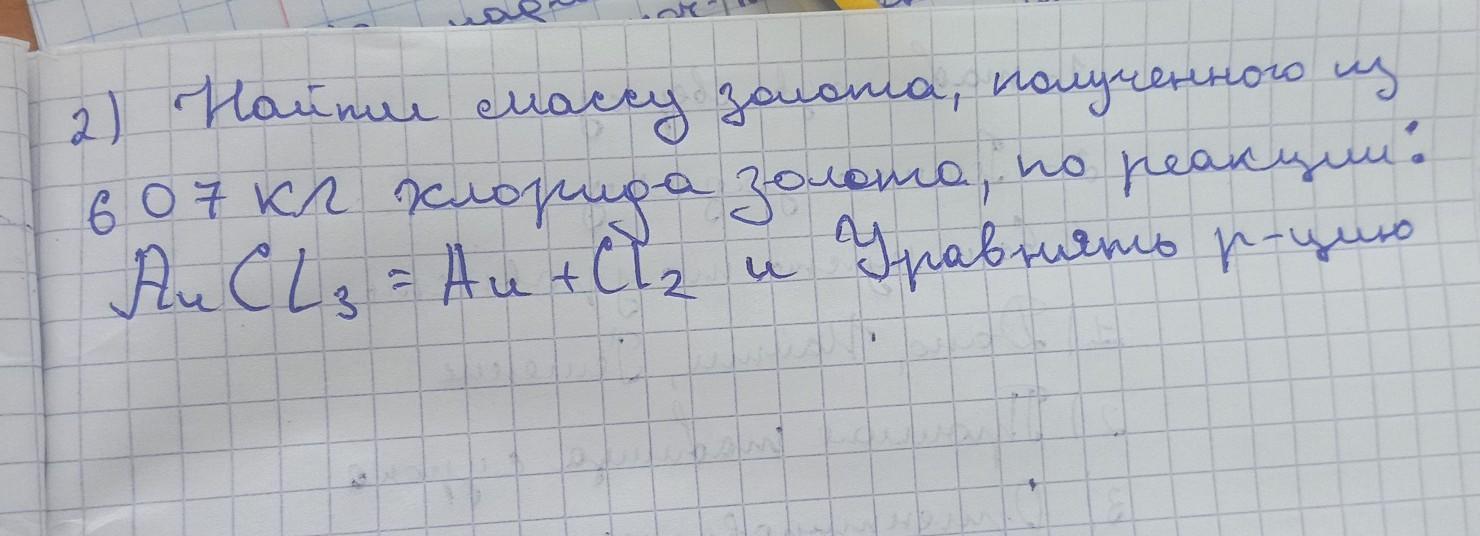 2) Найти массу золота, полученного из
607 кг хлорида золота, по реакции:
AuCl₃ = Au + Cl₂ и Уравнять р-цию